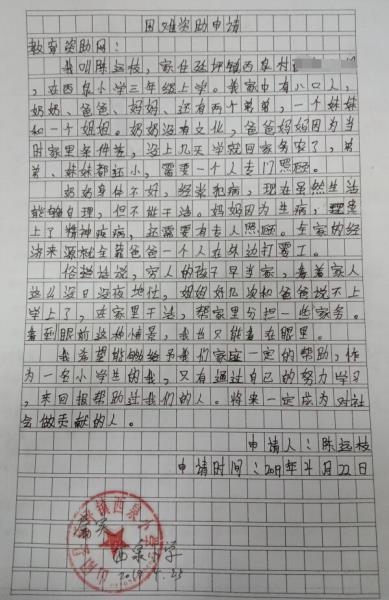 困难资助申请
教育资助网：
我叫陈远枝，家住延坪镇西泉村
，在西泉小学三年级上学。我家中有八口人，
奶奶、爸爸、妈妈、还有两个弟弟，一个妹妹
和一个姐姐。奶奶没有文化，爸爸妈妈因为当
时家里条件差，没上几天学就回家务农了，弟
弟、妹妹都还小，需要一个人专门照顾。
奶奶身体不好，经常和病，现在虽然生活
能够自理，但不能干活。妈妈因为生病，患
上了精神疾病，还需要有专人照顾。全家的经
济来源就全靠爸爸一个人在外边打零工。
俗话说，穷人的孩子早当家，看着家人
这么没日没夜地忙，姐姐好几次和爸爸说不上
学上了，在家里干活，帮家里分担一些家务。
看到眼前这种情景，我也只能看在眼里。
我希望能够给予我们家庭一定的帮助，作
为一名小学生的我，只有通过自己的努力学习
，来回报帮助过我们的人。将来一定成为对社
会做贡献的人。
申请人：陈远枝
申请时间：2019年4月22日
属实
西泉小学
2019.4.23